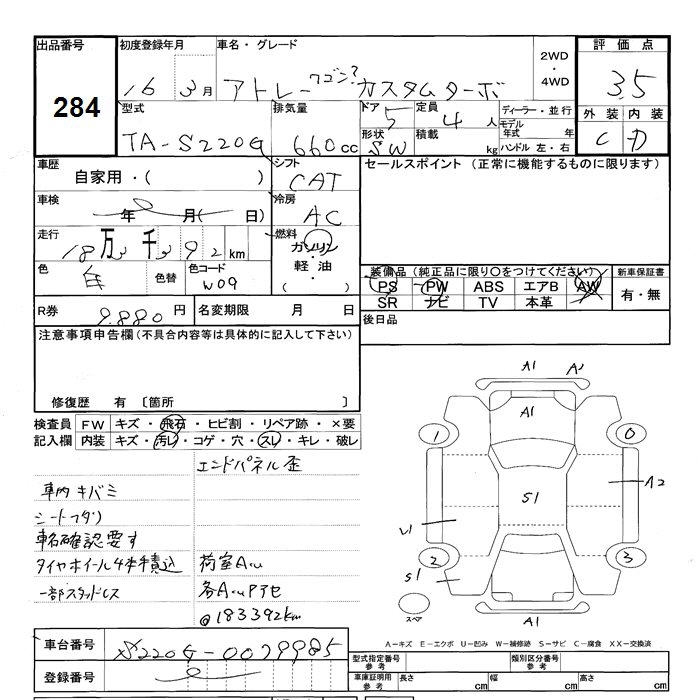 出品番号 初度登録年月 車名・グレード 2WD・4WD 評価点
284 16 3月 アトレー ワゴン? カスタムターボ 3.5
型式 排気量 ドア 5 定員 4人 ディーラー・並行 外装 内装
TA-S220G 660cc 形状 SW 積載 kg モデル年式 年 C D
ハンドル 左・右
車歴 自家用・( ) シフト CAT セールスポイント (正常に機能するものに限ります)
車検 年 月( 日) 冷房 AC
走行 18万 千 392km 燃料 ガソリン・軽油・( )
色 色替 色コード W09 装備品 (純正品に限り〇をつけてください) 新車保証書
PS PW ABS エアB AW 有・無
SR ナビ TV 本革
R券 9.880円 名変期限 月 日 後日品
注意事項申告欄(不具合内容等は具体的に記入して下さい)
修復歴 有 〔箇所 〕
検査員 FW キズ・飛石・ヒビ割・リペア跡・×要
記入欄 内装 キズ・汚レ・コゲ・穴・スレ・キレ・破レ
エンドパネル歪
車内キバミ
シートフタリ
車名確認要す
タイヤホイール4本積込 荷室Aum
一部スタッドレス 各AuPアセ
@183392km
A1 A1
A1
1 0
S1 A2
U1
2 3
S1
スペア A1
A-キズ E-エクボ U-凹み W-補修跡 S-サビ C-腐食 XX-交換済
車台番号 S220G-0079985 型式指定番号 参考 類別区分番号 参考
登録番号 車庫証明用 参考 長さ cm 幅 cm 高さ cm